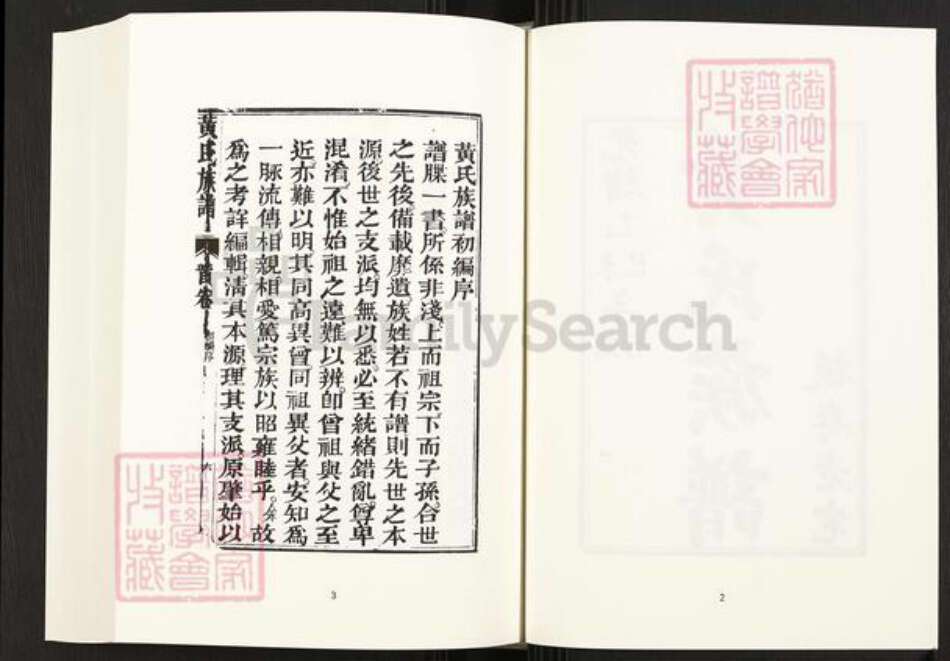 黃氏族譜初編序
譜牒一書。所係非淺。上而祖宗。下而子孫。合世
之先後備載靡遺。族姓若不有譜則先世之本
源。後世之支派。均無以悉。必至統緒錯亂。尊卑
混淆。不惟始祖之遠。難以辨。卽曾祖與父之至
近。亦難以明。其同高異曾。同祖異父者。安知為
一脈流傳。相親相愛。篤宗族以昭雍睦乎。故
為之考詳編輯清其本源理其支派。原肇始以
黃氏族譜
首卷
初編序
3
2
猶他家
譜學會
收藏
猶他家
譜學會
收藏
FamilySearch